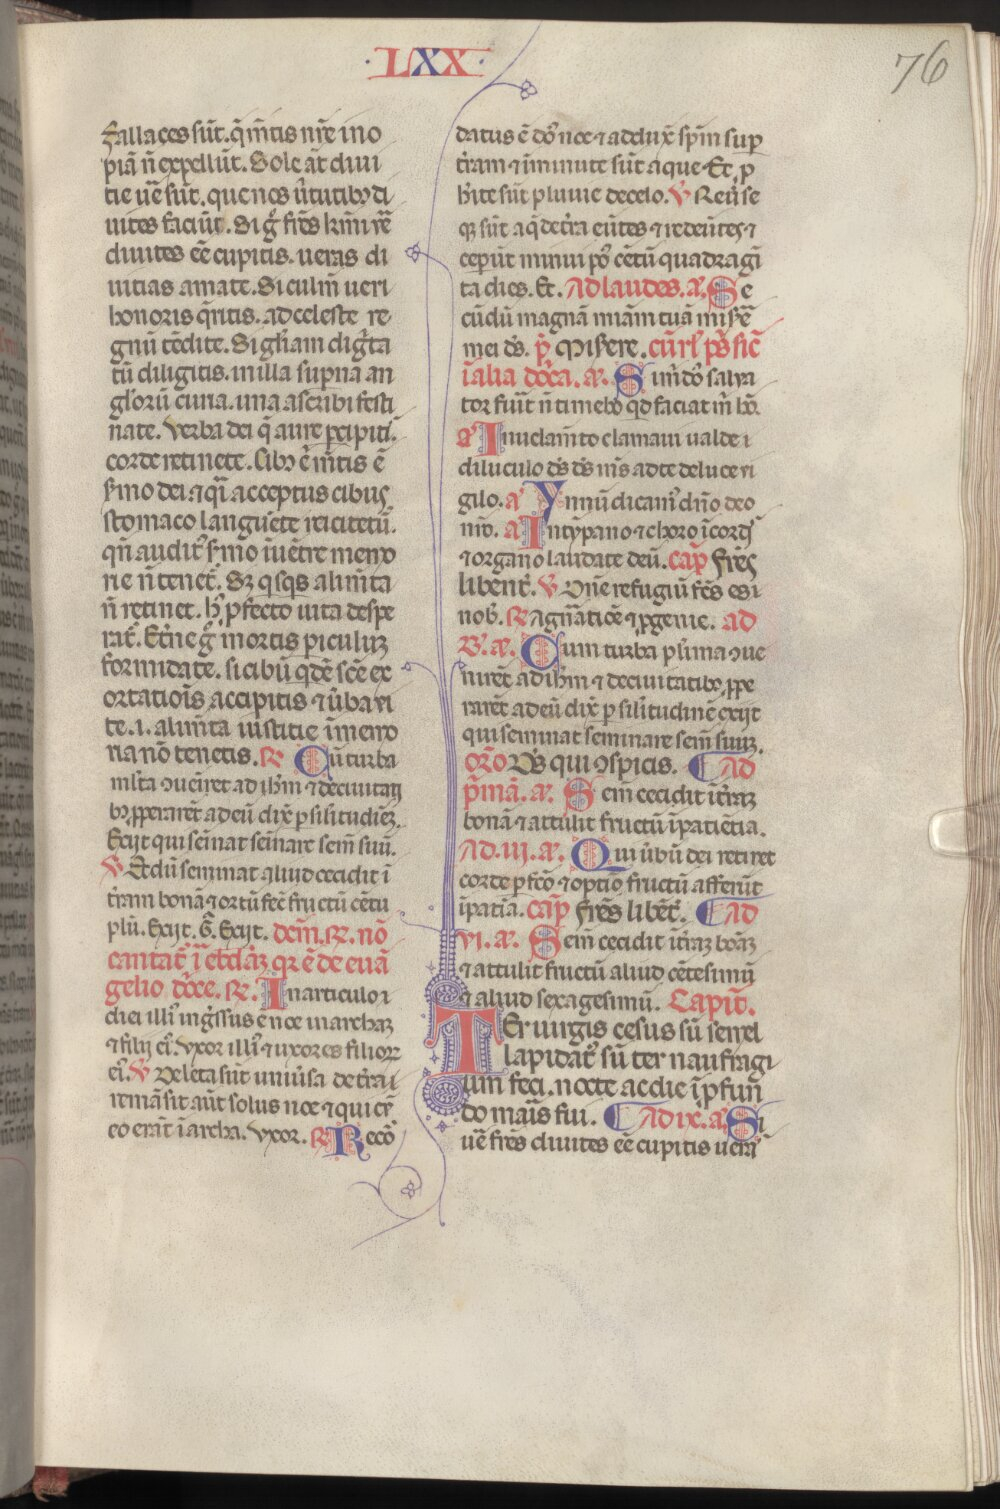 ·LXX·
76
fallaces sūt. q̄ m̄tis nr̄e ino
piā n̄ expellūt. Sole āt diui
tie ue᷑ sūt. que nos ūtutibꝫ di
uites faciūt. Si gͦ fr̄es k̄mi ue᷑
diuites ēe cupitis. ueras di
uitias amate. Si culm̄ ueri
honoris q̄ritis. ad celeste re
gnū tēdite. Si gl̄iam dig̅ta
tū diligitis. in illa sup̄na an
gl̓orū curia. una ascribi festi
nate. Verba dei q̄ aure ꝑcipitis.
corde retinete. Cibꝫ ē m̄tis ē
ẜmo dei ⁊ qͣi acceptus cibus
stomaco languēte reicitetū.
qn̄ audit᷑ ẜmo i uētre memo
rie n̄ tenet᷑. Sꝫ qͥsqͥs alim̄ta
n̄ retinet. hͥ ꝓfecto uita despe
rat᷑. Et̓ne gͦ mortis ꝑiculuꝫ
formidate. si cibū qͥdē sc̄e ex
ortatiōis accipitis ⁊ ūba ui
te .i. alim̄ta iustitie i memo
ria nō tenetis. ℟ Cū turba
ml̄ta ↄueīret ad ih̄m ⁊ de ciuitati
bꝫ ꝓperarēt ad eū dix̄ ꝑ silitudīeꝫ.
Exijt qui seīnat seīnare sem̄ suū.
℣ Et dū seminat aliud cecidit ī
t̄ram bonā ⁊ ortū fec̄ fructū cētu
plū. Exijt. G̅. Exijt. dem̄. ℟. nō
cantat᷑ ī ebd̓aꝫ qr ē de euā
gelio dōce. ℟. In articulo ı
diei illi᷒ īg̅ssus ē noe in archaꝫ
⁊ filij ei᷒. Vxor illi᷒ ⁊ uxores filioꝝ
ei᷒. ℣ Deleta sūt uniūsa de t̄ra ı
remāsit aūt solus noe ⁊ qui cū̄
eo erāt ī archa. Vxor. ℟ Recͦ
datus ē dn̄s noe ⁊ addux̄ sp̄m suꝑ
t̄ram ⁊ īminute sūt aque Et ꝓ
hite sūt pluuie de celo. ℣ Reūse
qꝫ sūt aqͣ de t̄ra eūtes ⁊ redeūtes ⁊
ceperūt minui pͦ cētū quadragī
ta dies. Et. Ad laudes. a᷑. Se
cūdū magnā miām tuā misere᷑
mei ds̄. p̄ Misere. cū rl̓ p̄s sic̄
ī alia dn̄ca. a᷑. Si m̓ dn̄s salua
tor fuīt n̄ timebo qd faciat m̓ hō.
a᷑ Inuelamīto clamaui ualde ı
diluculo ds̄ ds̄ m̄s ad te de luce ui
gilo. a᷑ Ymnū dicam᷒ dn̄o deo
nr̄o. a᷑ In tȳpano ⁊ choro ī cordis
⁊ organo laudate deū. cap̄ Fr̄es
libent᷑. ℣ Dn̄e refugiū fcs̄ es ı
nob̄. ℟ A gn̄atiōe ⁊ ꝓgenie. ad
B᷑. a᷑. Cum turba plurīma ↄue
niret ad ih̄m ⁊ de ciuitatibꝫ ꝓpe
rarēt ad eū dix̄ ꝑ silitudinē exijt
qui seminat seminare sem̄ suuꝫ.
oro Ds̄ qui ↄspicis. Ad
p̄mā. a᷑. Sem̄ cecidit ī t̄raꝫ
bonā ⁊ attulit fructū ī patiētia.
Ad .iij. a᷑. Qui ūbū dei retinēt
corde ꝑfc̄o ⁊ optīo fructū afferūt
ī patīa. cap̄ Fr̄es libēt᷑. Ad
vi. a᷑. Sem̄ cecidit ī t̄raꝫ bonāꝫ
⁊ attulit fructū aliud cētesimū
⁊ aliud sexagesimū. Capit̄.
Ter uirgis cesus sū semel
lapidat᷒ sū ter naufragi
um feci. nocte ac die ī ꝓfun
do maris fui. Ad ix. a᷑. Si
ue᷑ fr̄es diuites ēe cupitis ueras